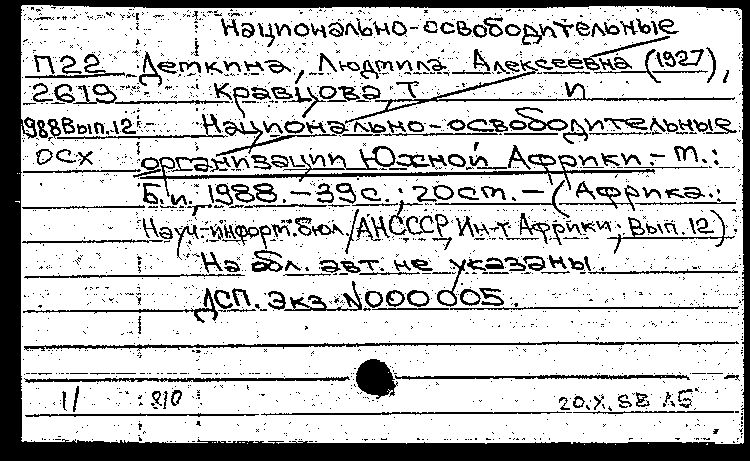 Национально-освободительные
П22 Деткина, Людмила Алексеевна (1927),
2619 Кравцова, Т и
1988Вып.12 Национально-освободительные
ОСХ организации Южной Африки.- М.:
Б.и., 1988.-39с.; 20см.-(Африка.:
Науч.-информ.бюл./АНСССР, Ин-т Африки; Вып.12).
На обл. авт. не указаны.
ДСП. Экз. №000 005.
11 810 20.X.88